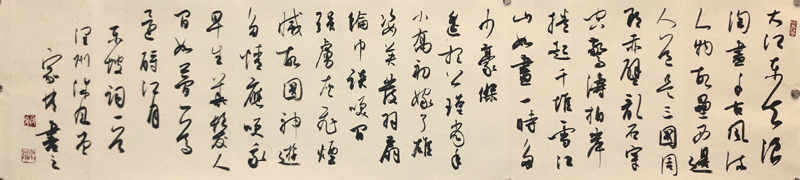 大江東去浪
淘盡千古風流
人物故壘西邊
人道是三國周
郎赤壁亂石穿
空驚濤拍岸
捲起千堆雪江
山如畫一時多
少豪傑
遙想公瑾當年
小喬初嫁了雄
姿英發羽扇
綸巾談笑間
強虜灰飛煙
滅故國神遊
多情應笑我
早生華髮人
間如夢一尊
還酹江月
東坡詞一首
書之